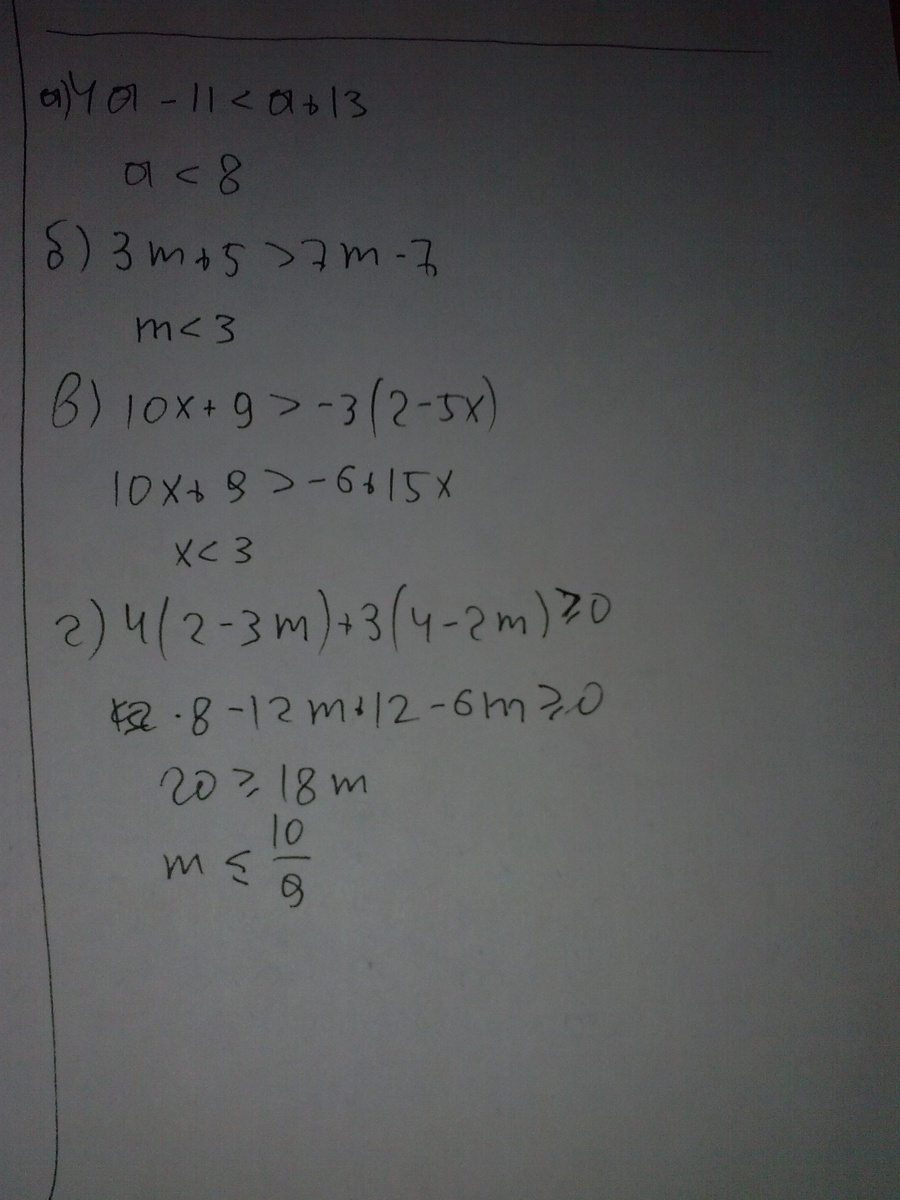 а) 4a - 11 < a + 13
a < 8
б) 3m + 5 > 7m - 7
m < 3
в) 10x + 9 > -3(2 - 5x)
10x + 9 > -6 + 15x
x < 3
г) 4(2 - 3m) + 3(4 - 2m) ≥ 0
8 - 12m + 12 - 6m ≥ 0
20 ≥ 18m
m ≤ 10/9